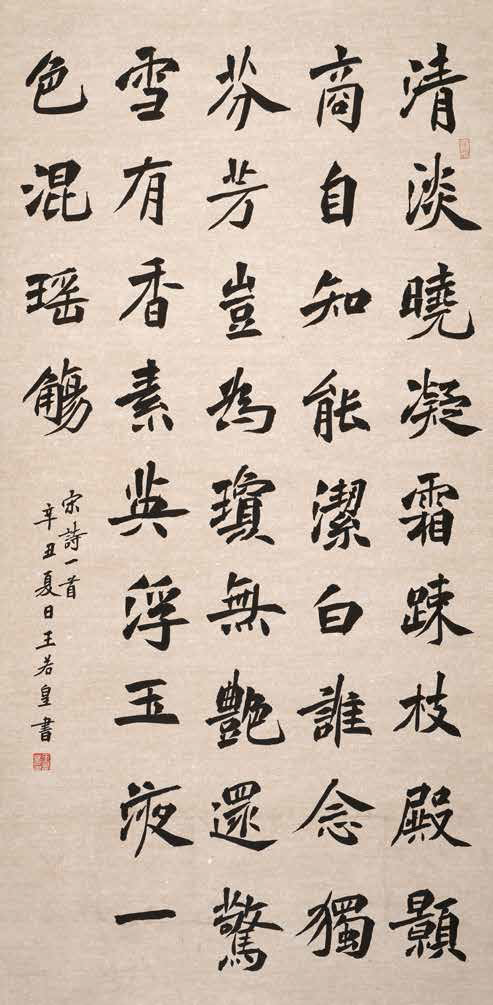 清淡曉凝霜踈枝殿顥
商自知能潔白誰念獨
芬芳豈為瓊無艶還驚
雪有香素英浮玉液一
色混瑶觴
宋詩一首
辛丑夏日王若皇書